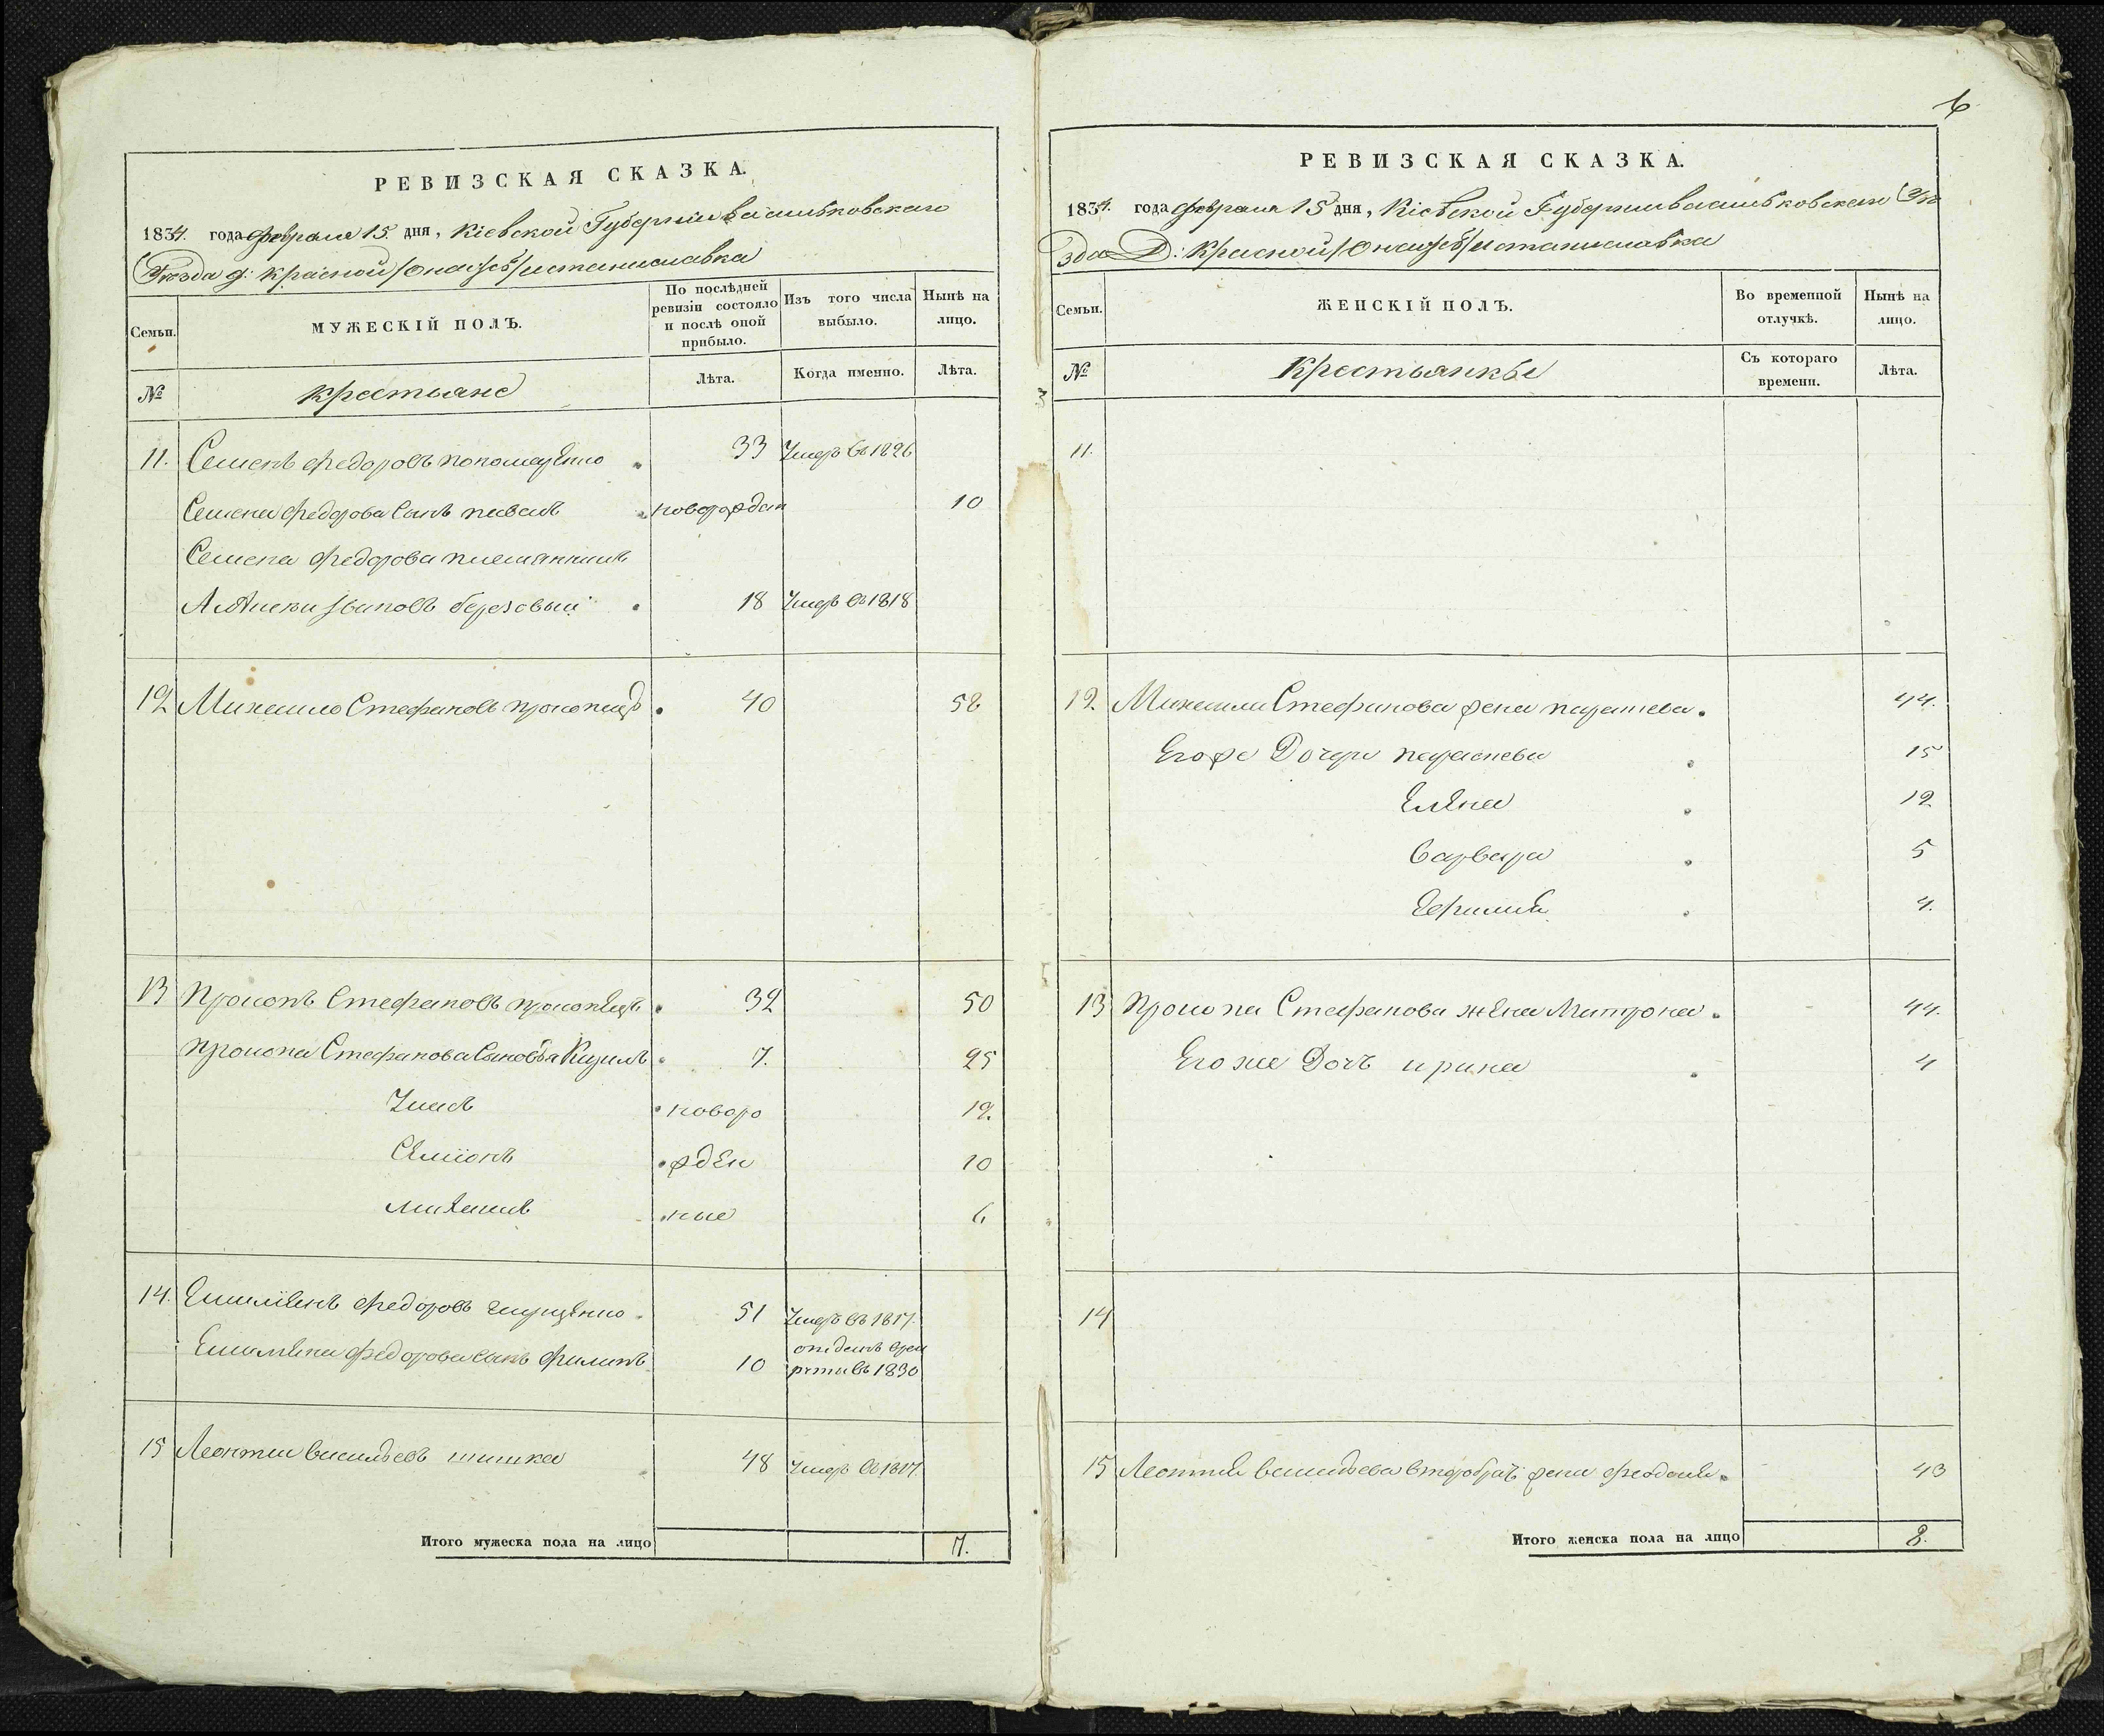 РЕВИЗСКАЯ СКАЗКА.
1834. года февраля 15. дня, Кіевской Губерніи васильковскаго
Уѣзда д: Красной /онаяжъ/ и станиславка
Семьи.
МУЖЕСКІЙ ПОЛЪ.
По послѣдней ревизіи состояло и послѣ оной прибыло.
Изъ того числа выбыло.
Нынѣ на лицо.
№
крестьяне
Лѣта.
Когда именно.
Лѣта.
11. Семенъ федоровъ 33 Умеръ въ 1826
Семена федорова сынъ новорожден 10
Семена федорова племянникъ
Алексѣи Ивановъ березовыи 18 Умеръ въ 1818
12 Михаило Стефановъ 40 58
13 Прокопъ Стефановъ 32 50
Прокопа Стефанова Сыновья Кирилъ 7. 25
новоро 12.
Семіонъ жден 10
Михаилъ ные 6
14. Емиліянъ федоровъ 51 Умеръ въ 1817.
Емиліяна федорова сынъ филипъ 10 отданъ въ рекруты въ 1830
15 Леонтіи васильевъ шишка 48 Умеръ въ 1817.
Итого мужеска пола на лицо 7.
6
РЕВИЗСКАЯ СКАЗКА.
1834. года февраля 15 дня, Кіевской Губерніи васильковскаго Уѣ
зда Д: Красной /Онаяжъ/ и станиславка
Семьи.
ЖЕНСКІЙ ПОЛЪ.
Во временной отлучкѣ.
Нынѣ на лицо.
№
Крестьянки
Съ котораго времени.
Лѣта.
11.
12. Михаила Стефанова жена параскева 44.
Егоже Дочери параскева 15
Елена 12
варвара 5
Ефимія 4.
13 Прокопа Стефанова жена Матрона 44.
Его же Дочь ирина 4
14
15 Леонтія васильева жена феодосія 43
Итого женска пола на лицо 8.